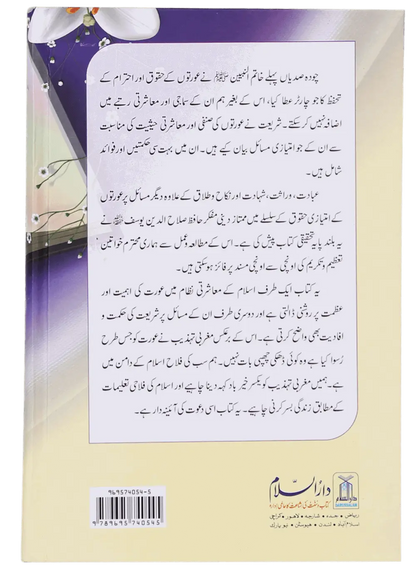 چودہ صدیاں پہلے خاتم النبیین ﷺ نے عورتوں کے حقوق اور احترام کے
تحفظ کا جو چارٹر عطا کیا، اس کے بغیر ہم ان کے سماجی اور معاشرتی رتبے میں
اضافہ نہیں کر سکتے۔ شریعت نے عورتوں کی صنفی اور معاشرتی حیثیت کی مناسبت
سے ان کے جو امتیازی مسائل بیان کیے ہیں۔ ان میں بہت سی حکمتیں اور فوائد
شامل ہیں۔
عبادت، وراثت، شہادت اور نکاح و طلاق کے علاوہ دیگر مسائل پر عورتوں
کے امتیازی حقوق کے سلسلے میں ممتاز دینی مفکر حافظ صلاح الدین یوسف نے
یہ بلند پایہ تحقیقی کتاب پیش کی ہے۔ اس کے مطالعہ و عمل سے ہماری محترم خواتین
تعظیم و تکریم کی اونچی سے اونچی مسند پر فائز ہو سکتی ہیں۔
یہ کتاب ایک طرف اسلام کے معاشرتی نظام میں عورت کی اہمیت اور
عظمت پر روشنی ڈالتی ہے اور دوسری طرف ان کے مسائل پر شریعت کی حکمت و
افادیت بھی واضح کرتی ہے۔ اس کے برعکس مغربی تہذیب نے عورت کو جس طرح
رسوا کیا ہے وہ کوئی ڈھکی چھپی بات نہیں۔ ہم سب کی فلاح اسلام کے دامن میں
ہے۔ ہمیں مغربی تہذیب کو یکسر خیر باد کہہ دینا چاہیے اور اسلام کی فلاحی تعلیمات
کے مطابق زندگی بسر کرنی چاہیے۔ یہ کتاب اسی دعوت کی آئینہ دار ہے۔
969574054-5
9 789695 740545
دارالسلام
کتاب و سنت کی اشاعت کا عالمی ادارہ
ریاض • جدہ • شارجہ • لاہور • کراچی
اسلام آباد • لندن • ہیوسٹن • نیو یارک
دارالسلام
DARUSSALAM